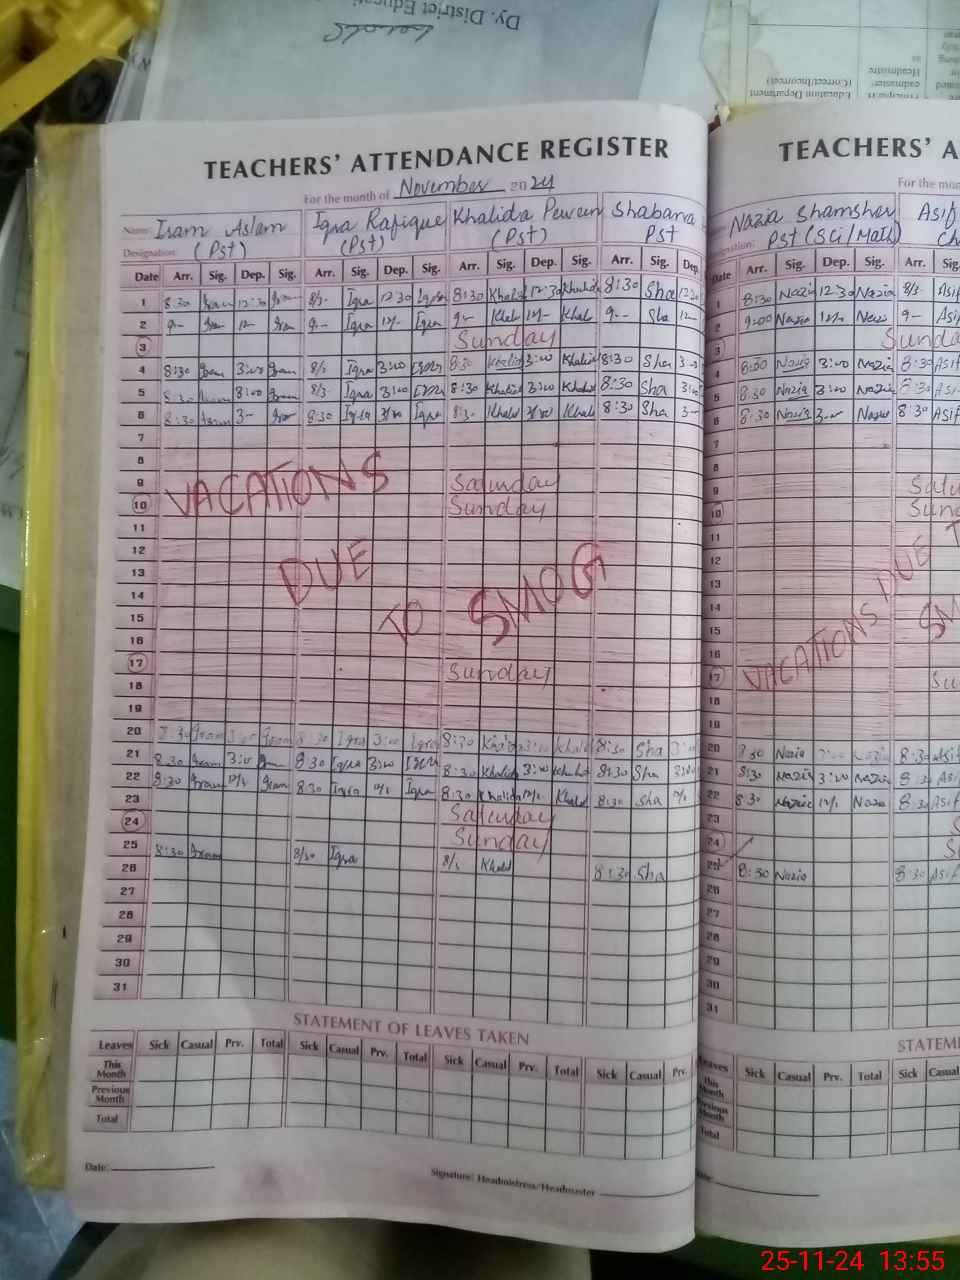 Dy. District Educati
Education Department
(Correct/Incorrect)
Headmistre
TEACHERS' ATTENDANCE REGISTER
For the month of November 2024
Name: Iram Aslam Iqra Rafique Khalida Parveen Shabana
Designation: (Pst) (Pst) (Pst) Pst
Date Arr. Sig. Dep. Sig. Arr. Sig. Dep. Sig. Arr. Sig. Dep. Sig. Arr. Sig. Dep.
1 8:30 Iram 12:30 Iram 8/3- Iqra 12 30 Iqra 8:30 Khalid 12:30 Khalid 8:30 Sha 12:3
2 9- Iram 12- Iram 9- Iqra 12/- Iqra 9- Khal 12/- Khal 9- Sha 12-
3 Sunday
4 8:30 Iram 3:00 Iram 8/3 Iqra 3:00 Iqra 8:30 Khalid 3:00 Khalid 8:30 Sha 3-0
5 8:30 Iram 3:00 Iram 8/3- Iqra 3:00 Iqra 8:30 Khalid 3:00 Khalid 8:30 Sha 3:0
6 8:30 Iram 3- Iram 8:30 Iqra 3/00 Iqra 8:3- Khalid 3/00 Khal 8:30 Sha 3-
7
8
9 Saturday
10 Sunday
VACATIONS
11
12
13
DUE TO SMOG
14
15
16
17 Sunday
18
19
20 8:30 Iram 3:00 Iram 8:30 Iqra 3:00 Iqra 8:30 Khalid 3:00 Khalid 8:30 Sha 3:0
21 8:30 Iram 3:00 Iram 8:30 Iqra 3:00 Iqra 8:30 Khalid 3:00 Khalid 8:30 Sha 3:00
22 8:30 Iram 12/- Iram 8:30 Iqra Iqra 8:30 Khalida 12/- Khalid 8:30 Sha
23 Saturday
24 Sunday
25 8:30 Iram 8/30 Iqra 8/3 Khalid 8:30 Sha
26
27
28
29
30
31
STATEMENT OF LEAVES TAKEN
Leaves Sick Casual Prv. Total Sick Casual Prv. Total Sick Casual Prv. Total Sick Casual Prv.
This Month
Previous Month
Total
Date: Signature: Headmistress/Headmaster
TEACHERS' A
For the m
Nazia Shamsher Asif
Pst (Sci/Math) Ch
Arr. Sig. Dep. Sig. Arr. Sig.
1 8:30 Nazia 12 30 Nazia 8/3- Asif
2 9:00 Nazia 12/- Nazia 9- Asif
3 Sunda
4 8:30 Nazia 3:00 Nazia 8:30 Asif
5 8:30 Nazia 3:00 Nazia 8:30 Asif
6 8:30 Nazia 3- Nazia 8:30 Asif
7
8
9 Satu
10 Sund
11
12
13
14
15
16
VACATIONS DUE T
SM
17 Su
18
19
20 8:30 Nazia Nazia 8:30 Asif
21 8:30 Nazia 3:00 Nazia 8:30 Asif
22 8:30 Nazia 12/- Nazia 8:30 Asif
23 S
24 S
25 8:30 Nazia 8:30 Asif
26
27
28
29
30
31
STATEM
Leaves Sick Casual Prv. Total Sick Casual
This Month
Previous Month
Total
Date:
25-11-24 13:55